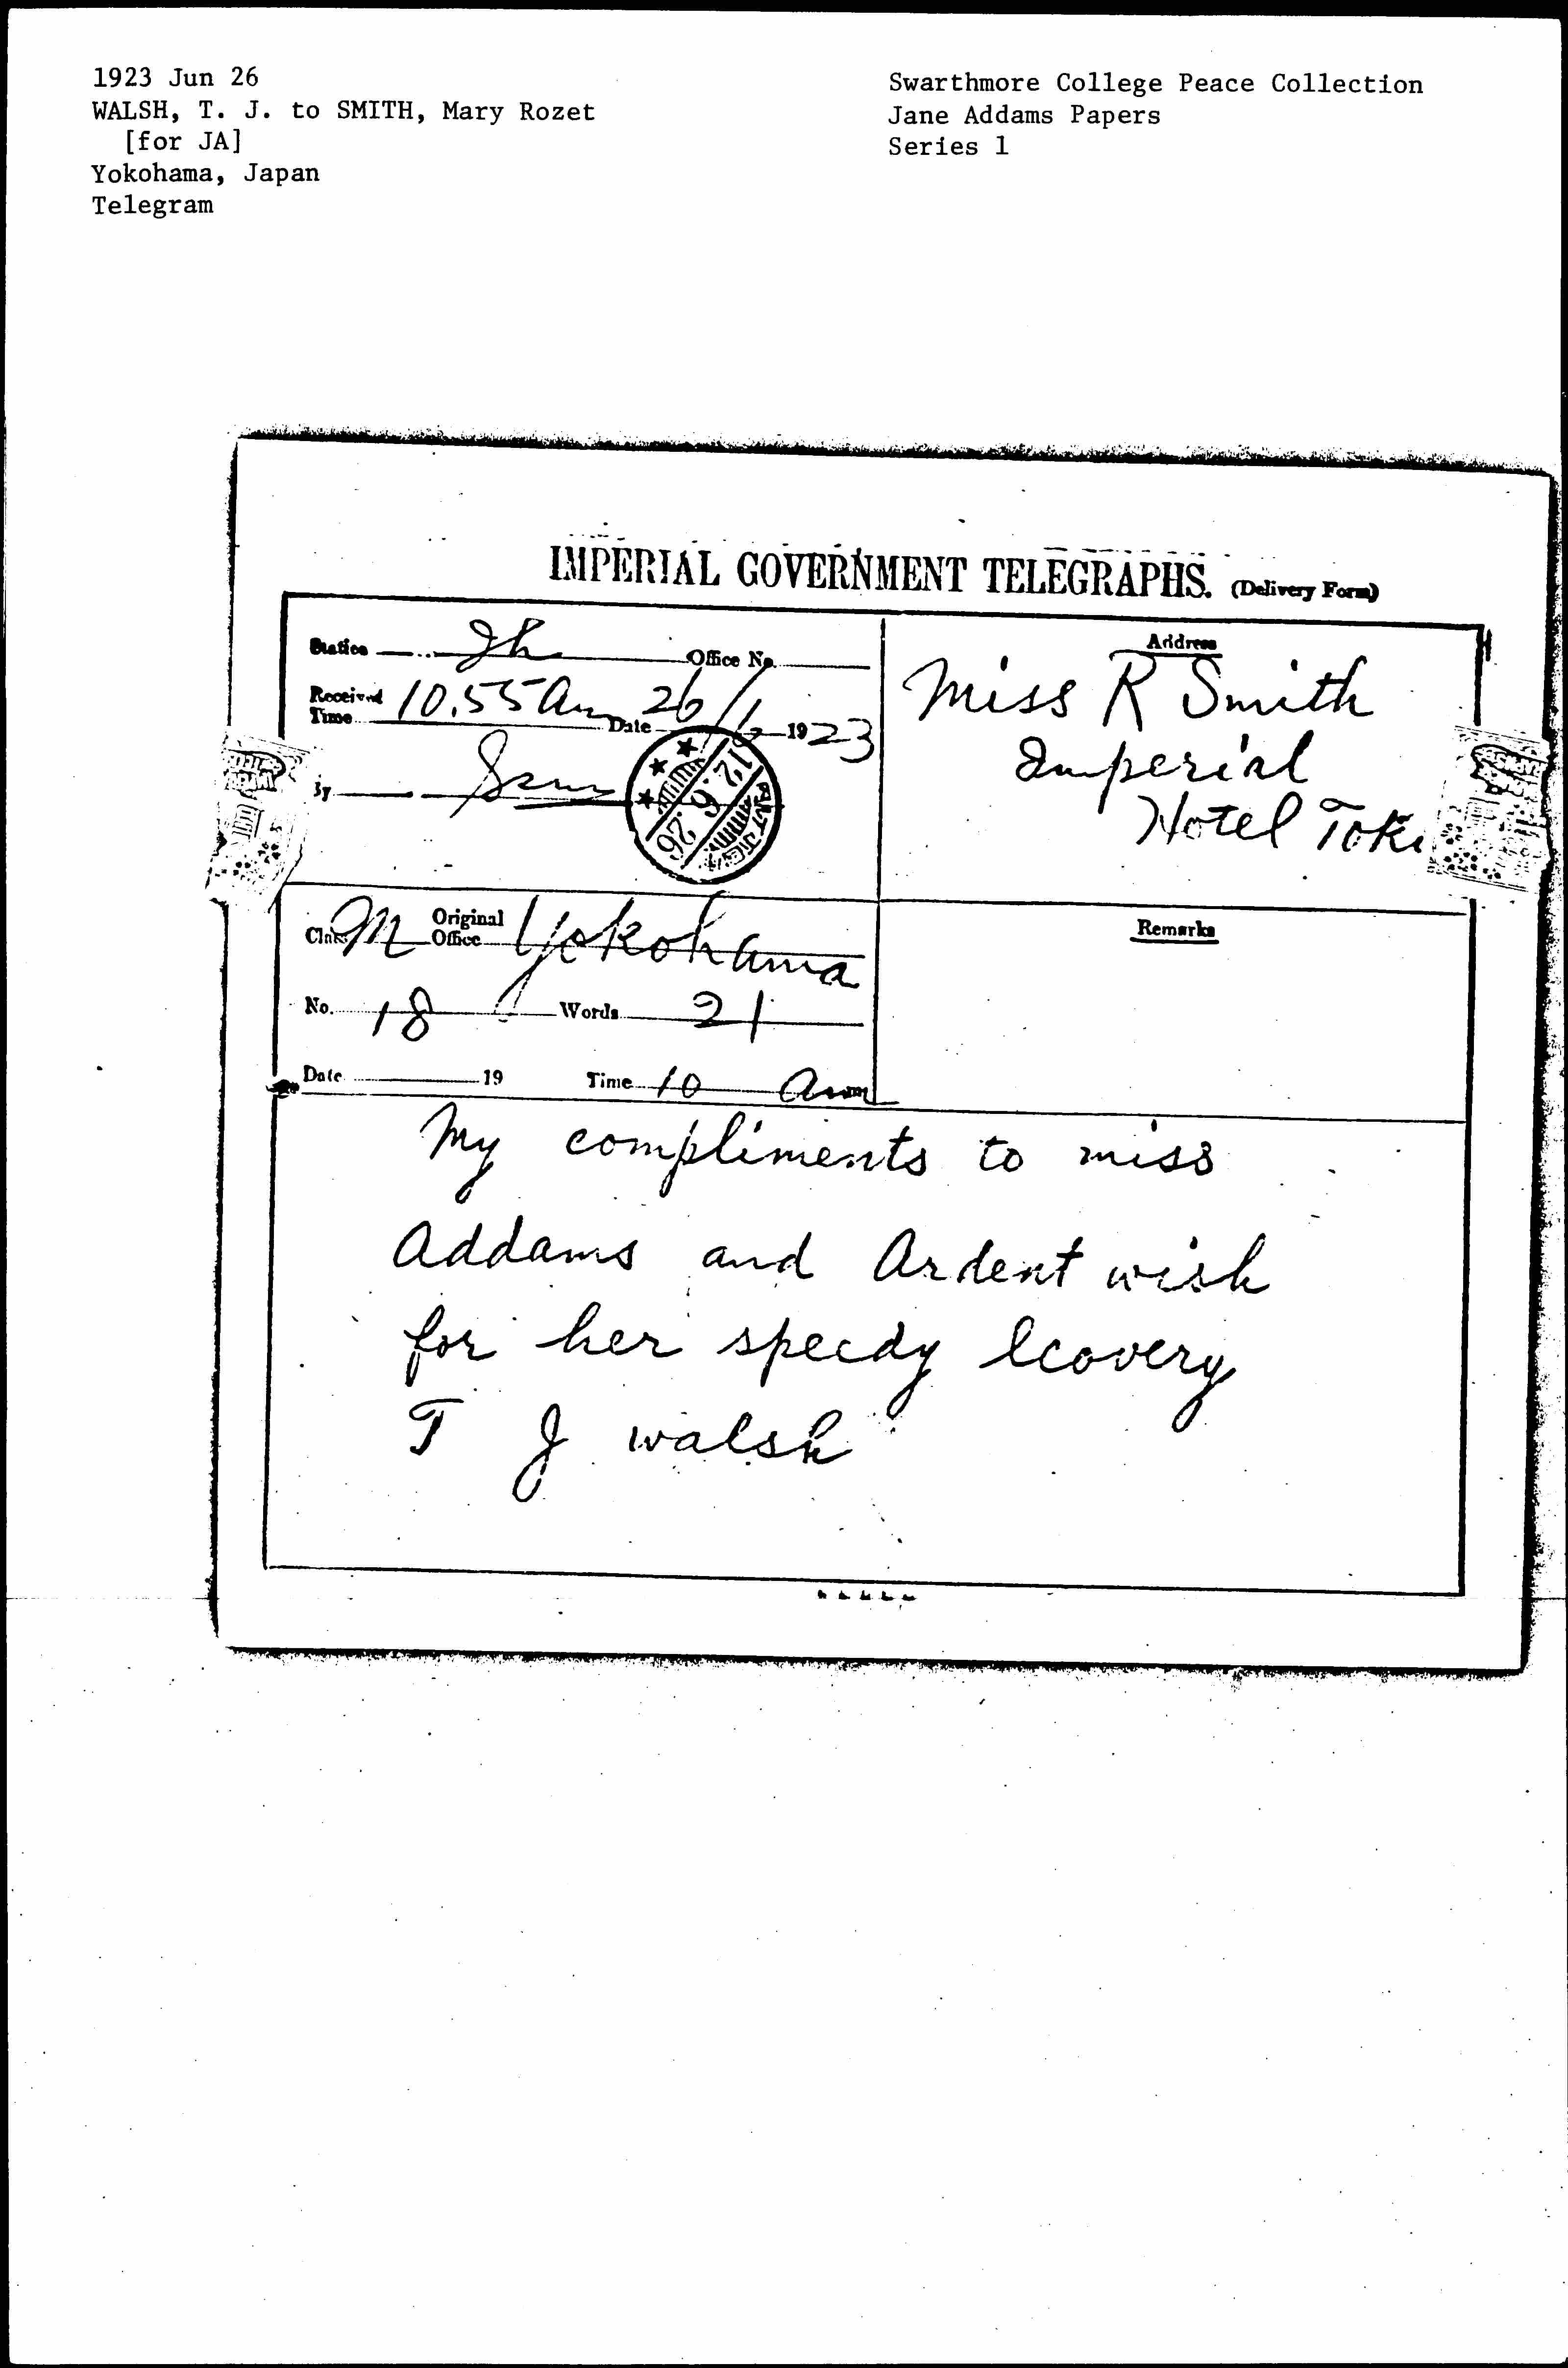 1923 Jun 26
WALSH, T. J. to SMITH, Mary Rozet
[for JA]
Yokohama, Japan
Telegram
Swarthmore College Peace Collection
Jane Addams Papers
Series 1
IMPERIAL GOVERNMENT TELEGRAPHS. (Delivery Form)
Station Office No.
Received Time 10.55 Am Date 26/6 1923
By
12.6.26
Address
Miss R Smith
Imperial
Hotel Toki
Class M Original Office Yokohama
No. 18 Words 21
Date 19 Time 10 Am
Remarks
My compliments to miss
Addams and Ardent wish
for her speedy lcovery
T J walsh